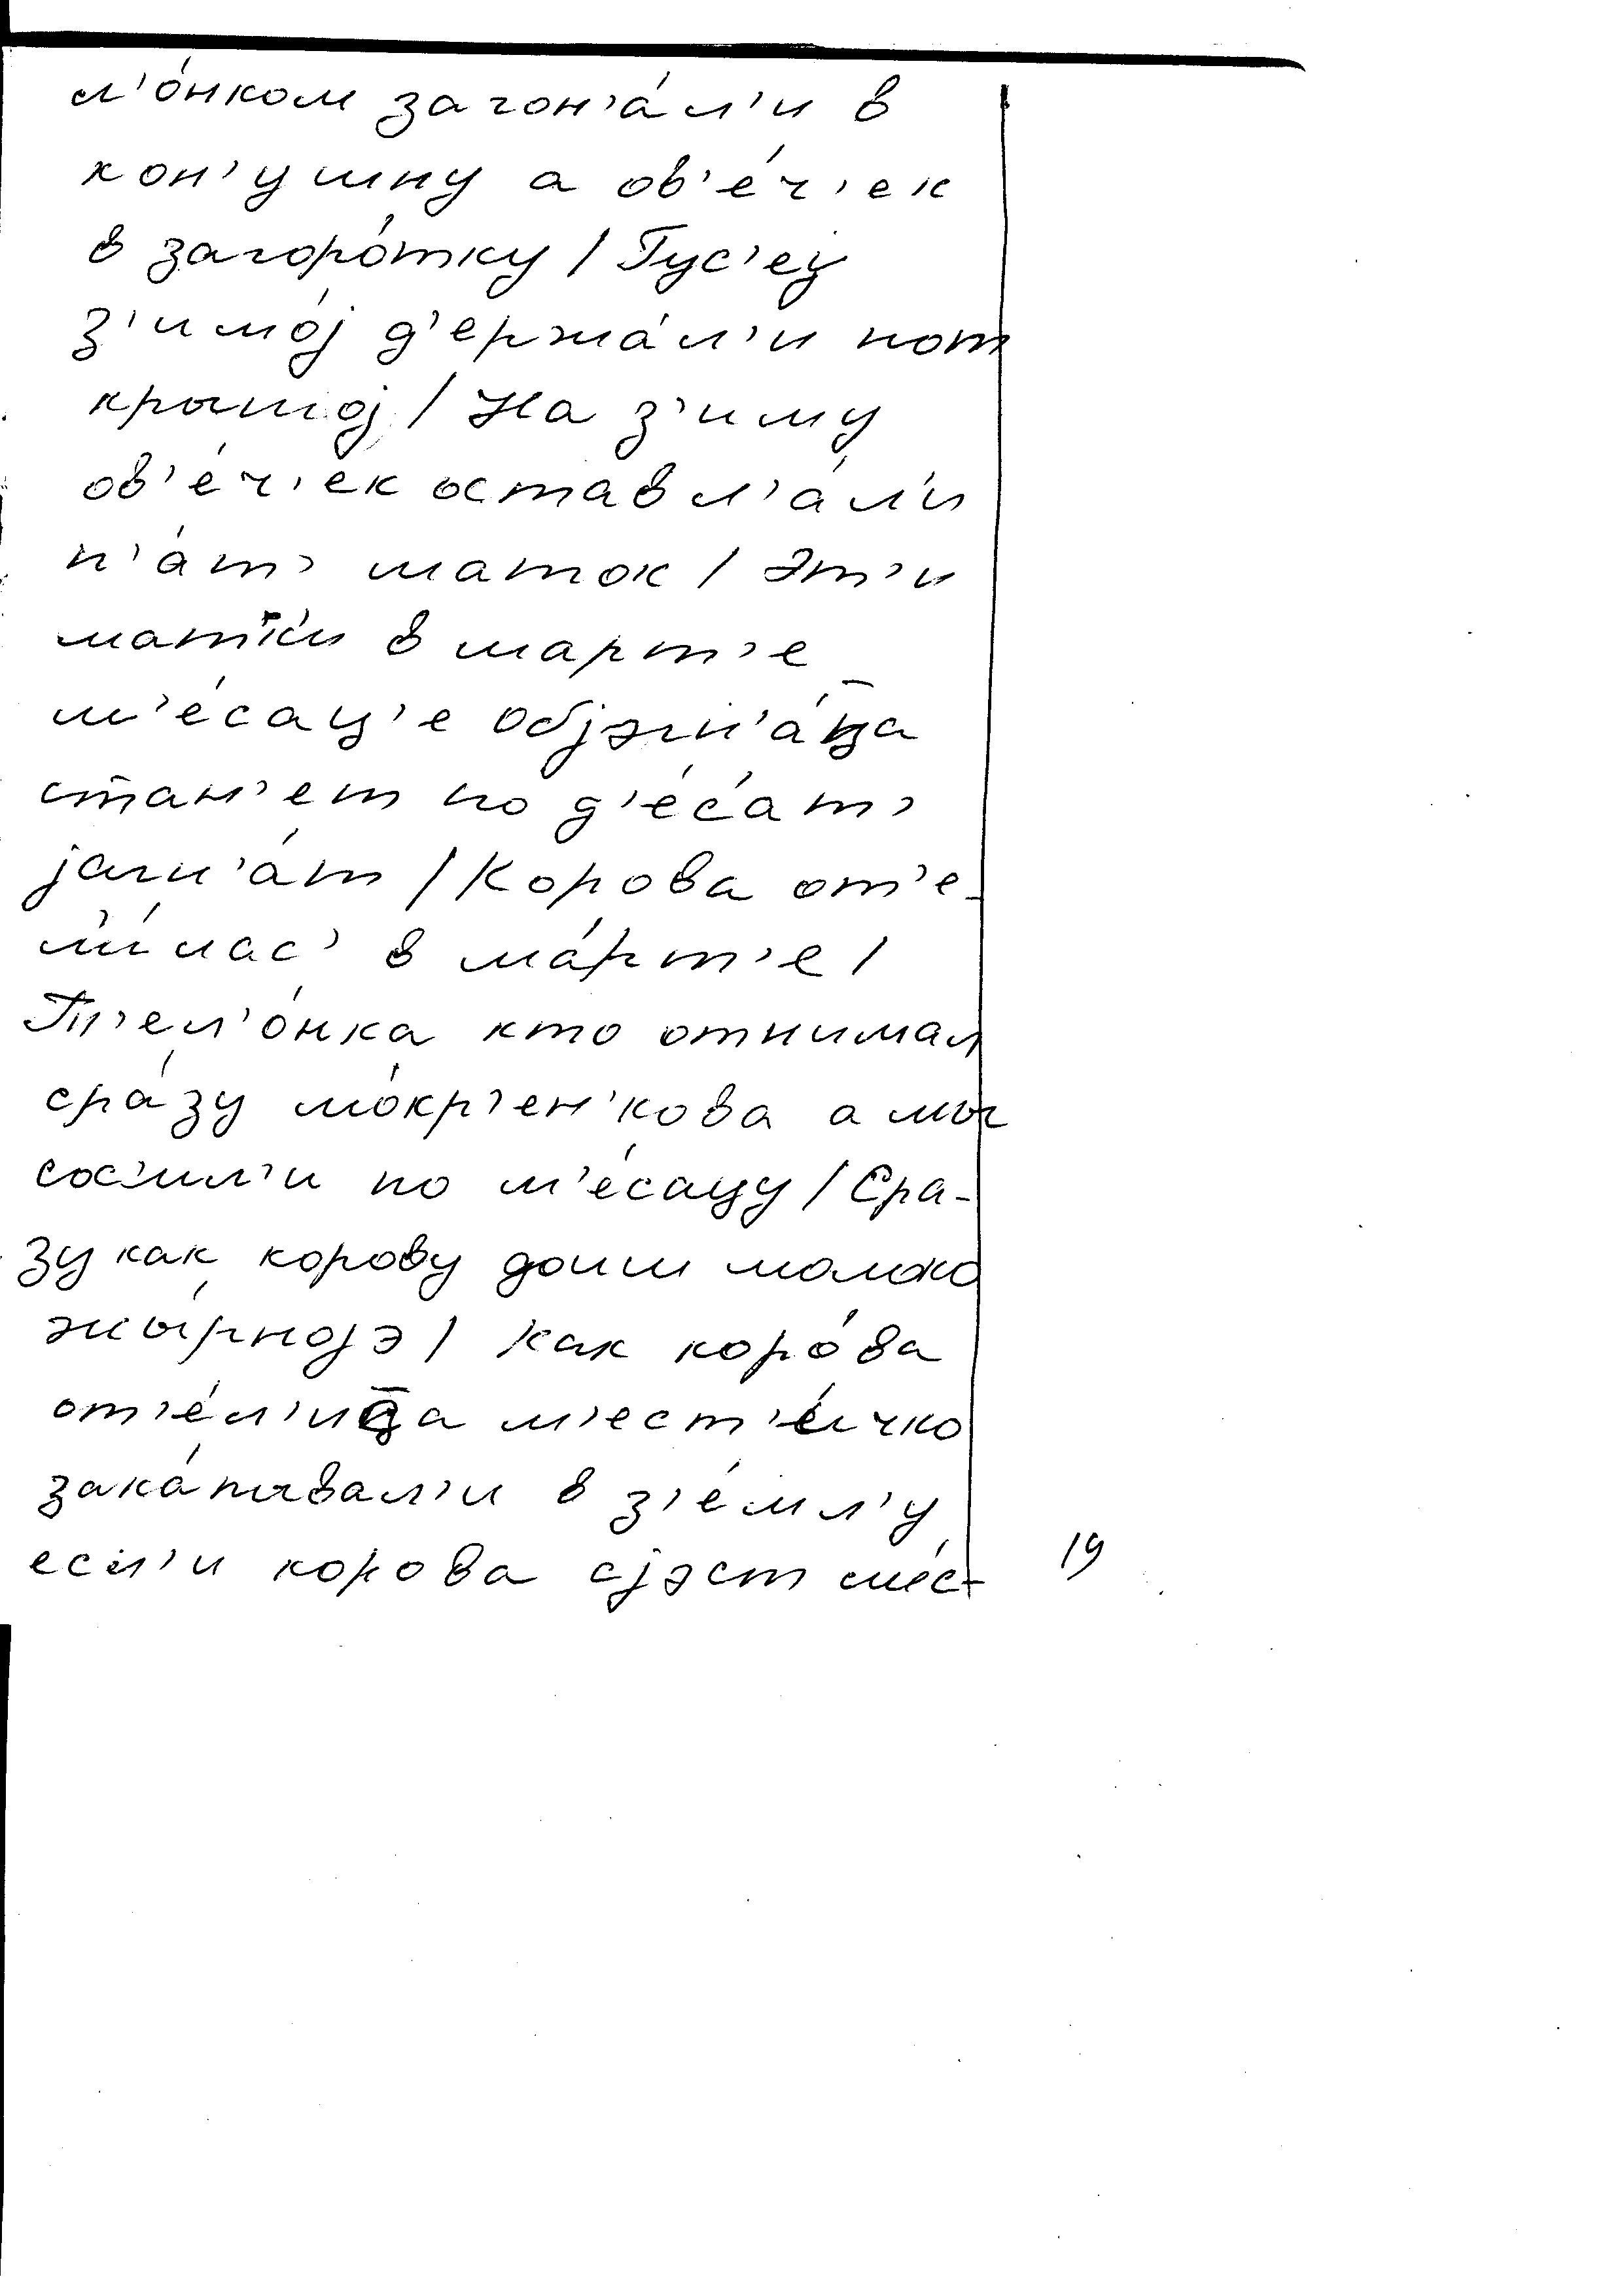 л'о́нком загон'а́л'и в
кон'ушну а ов'е́ч'ек
в загоро́тку / Гус'еј
з'имо́ј д'ержа́л'и пот
крышој / На з'иму
ов'е́ч'ек оставл'а́л'и
п'а́т' маток / Эт'и
матк'и в март'е
м'е́сац'е објэгн'а́ц̄а
стан'ет по д'е́с'ат'
јагн'а́т / Корова от'е-
л'и́лас' в ма́рт'е /
Т'ел'о́нка кто отнимал
сра́зу мо́кр'ен'кова а мы
сос'ил'и по м'е́сацу / Сра-
зу как корову доиш молоко
жы́рнојэ / Как коро́ва
от'е́л'иц̄а м'ест'е́чко
зака́пывал'и в з'е́мл'у
есл'и корова сјэст м'ес-
19